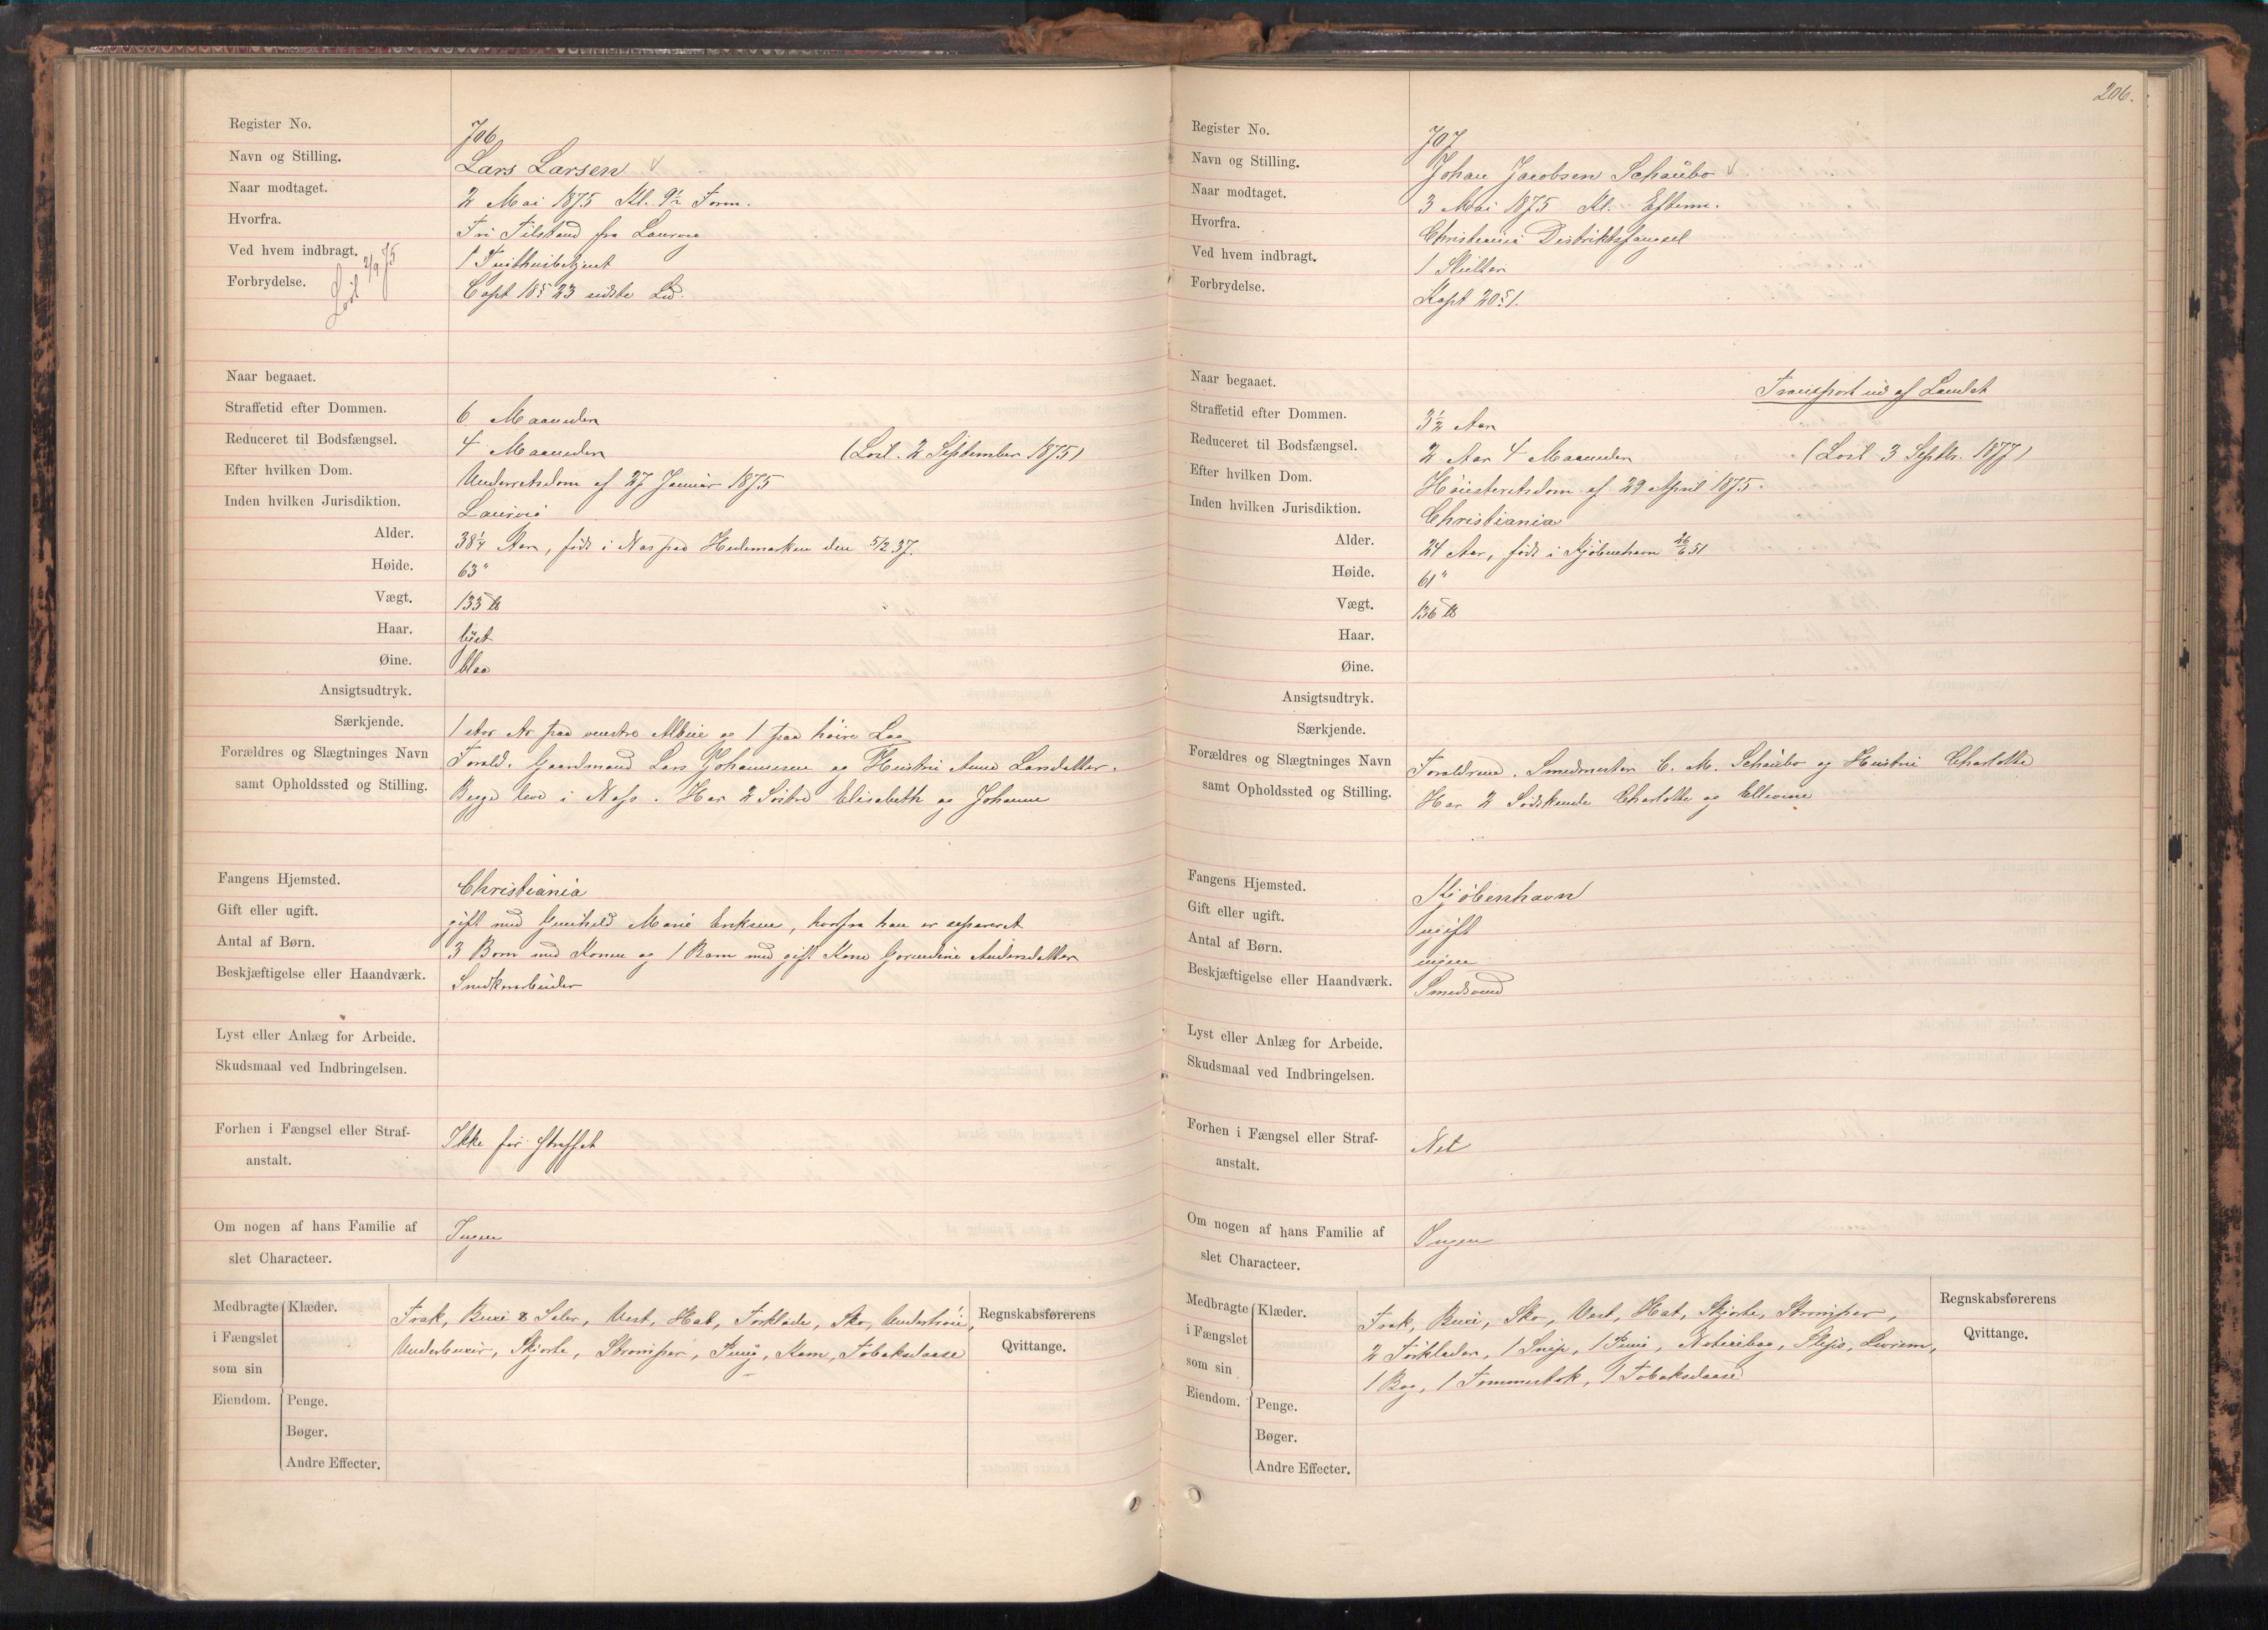 Register No. 706
Navn og Stilling. Lars Larsen
Naar modtaget. 2 Mai 1875 Kl. 9½ Form.
Hvorfra. Fri Tilstand fra Laurvig
Ved hvem indbragt. 1 Tugthusbetjent
Forbrydelse. Capt 18 § 23 sidste Led.
Løsl 2/9 75
Naar begaaet.
Straffetid efter Dommen. 6 Maaneder
Reduceret til Bodsfængsel. 4 Maaneder (Løsl. 2 September 1875)
Efter hvilken Dom. Underretsdom af 27 Januar 1875
Inden hvilken Jurisdiktion. Laurvig
Alder. 38¼ Aar, født i Næs paa Hedemarken den 5/2 37.
Høide. 63"
Vægt. 133 ℔
Haar. lyst
Øine. blaa
Ansigtsudtryk.
Særkjende. 1 stor Ar paa venstre Albue og 1 paa høire Læg
Forældres og Slægtninges Navn Foræld. Gaardmand Lars Johannesen og Hustru Anne Larsdatter.
samt Opholdssted og Stilling. Begge leve i Næss. Har 2 Søstre Elisabeth og Johanne
Fangens Hjemsted. Christiania
Gift eller ugift. gift med Gunhild Marie Eriksen, hvorfra han er separeret
Antal af Børn. 3 Børn med Konen og 1 Barn med gift Kone Andersdatter
Beskjæftigelse eller Haandværk. Snedkerarbeider
Lyst eller Anlæg for Arbeide.
Skudsmaal ved Indbringelsen.
Forhen i Fængsel eller Straf- Ikke før straffet
anstalt.
Om nogen af hans Familie af Ingen
slet Characteer.
Medbragte Klæder. Frak, Buxe & Seler, Vest, Hat, Tørklæde, Sko, Undertrøie,
i Fængslet Underbuxer, Skjorte, Strømper, Pung, Kam, Tobaksdaase
som sin
Eiendom. Penge.
Bøger.
Andre Effecter.
Regnskabsførerens
Qvittange.
206.
Register No. 707
Navn og Stilling. Johan Jacobsen Schaübo
Naar modtaget. 3 Mai 1875 Kl. Efterm.
Hvorfra. Christiania Distriktsfængsel
Ved hvem indbragt. 1 Slutter
Forbrydelse. Kapt 20 § 1.
Naar begaaet. Transport ud af Landet
Straffetid efter Dommen. 3½ Aar
Reduceret til Bodsfængsel. 2 Aar 4 Maaneder (Løsl 3 Septbr. 1877)
Efter hvilken Dom. Høiesteretsdom af 29 April 1875.
Inden hvilken Jurisdiktion. Christiania
Alder. 24 Aar, født i Kjøbenhavn 26/6 51
Høide. 61"
Vægt. 136 ℔
Haar.
Øine.
Ansigtsudtryk.
Særkjende.
Forældres og Slægtninges Navn Forældrene. Smedmester C. M. Schaübo og Hustru Charlotte
samt Opholdssted og Stilling. Har 2 Sødskende Charlotte og Ellevine
Fangens Hjemsted. Kjøbenhavn
Gift eller ugift. ugift
Antal af Børn. ingen
Beskjæftigelse eller Haandværk. Smedsvend
Lyst eller Anlæg for Arbeide.
Skudsmaal ved Indbringelsen.
Forhen i Fængsel eller Straf- Nei
anstalt.
Om nogen af hans Familie af Ingen
slet Characteer.
Medbragte Klæder. Frak, Buxe, Sko, Vest, Hat, Skjorte, Strømper,
i Fængslet 2 Tørklæder, 1 Snip, 1 Pung, Notitsbog, Slips, Livrem,
som sin 1 Bog, 1 Tommestok, 1 Tobaksdaase
Eiendom. Penge.
Bøger.
Andre Effecter.
Regnskabsførerens
Qvittange.